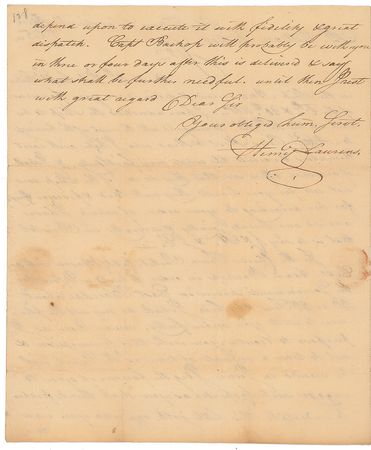 128
depend upon to execute it with fidelity & great
dispatch. Capt Bachop will probably be with you
in three or four days after this is delivered & say
what shall be further needful. until then I rest
with great regard Dear Sir
Your obliged hum. Servt.
Henry Laurens.